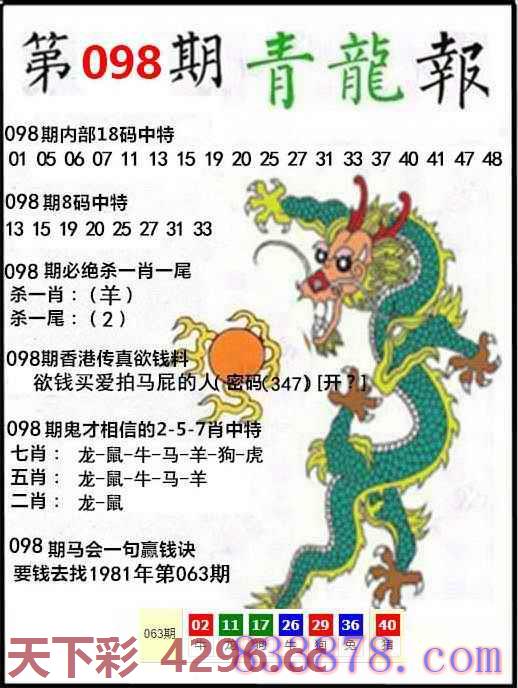 第098期青龍報
098期内部18码中特
01 05 06 07 11 13 15 19 20 25 27 31 33 37 40 41 47 48
098期8码中特
13 15 19 20 25 27 31 33
098 期必绝杀一肖一尾
杀一肖：（羊）
杀一尾：（2）
098期香港传真欲钱料
欲钱买爱拍马屁的人(密码(347) [开？]
098期鬼才相信的2-5-7肖中特
七肖： 龙-鼠-牛-马-羊-狗-虎
五肖： 龙-鼠-牛-马-羊
二肖： 龙-鼠
098期马会一句赢钱诀
要钱去找1981年第063期
063期 02 11 17 26 29 36 40
牛 龙 狗 牛 狗 兔 猪
天下彩 4296.cc
838878.com